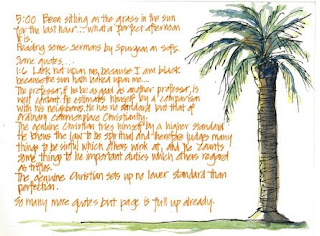 3:00 Been sitting on the grass in the sun
for the last hour... what a perfect afternoon
it is.
Reading some sermons by Spurgeon on SofS.
Some quotes...
1:6 Look not upon me, because I am black
because the sun hath looked upon me...
The professor, if he be as good as another professor, is
well content. He estimates himself by a comparison
with his neighbors. He has no standard but that of
ordinary commonplace Christianity.
The genuine Christian tries himself by a higher standard
He knows the law to be spiritual and therefore judges many
things to be sinful which others wink at, and he counts
some things to be important duties which others regard
as trifles.
The genuine Christian sets up no lower standard than
perfection.
So many more quotes but page is full up already.